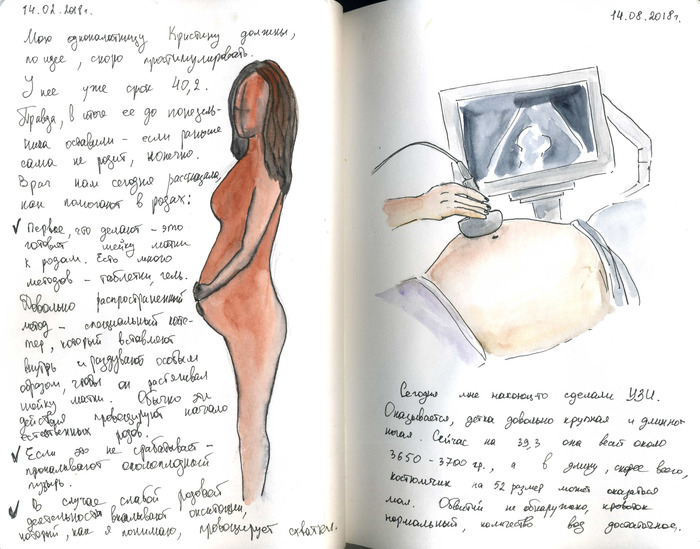 14.02.2018г.
Мою однопалатницу Кристину должны,
по идее, скоро простимулировать.
У нее уже срок 40,2.
Правда, в итоге ее до понедель-
ника оставили – если раньше
сама не родит, конечно.
Врач нам сегодня рассказала,
как помогают в родах:
✓ Первое, что делают – это
готовят шейку матки
к родам. Есть много
методов – таблетки, гель.
Довольно распространенный
метод – специальный кате-
тер, который вставляют
внутрь и раздувают особым
образом, чтобы он растягивал
шейку матки. Обычно эти
действия провоцируют начало
естественных родов.
✓ Если это не срабатывает –
прокалывают околоплодный
пузырь.
✓ В случае слабой родовой
деятельности вкалывают окситоцин,
который, как я понимаю, провоцирует схватки.
14.08.2018г.
Сегодня мне наконец-то сделали УЗИ.
Оказывается, детка довольно крупная и длинно-
ногая. Сейчас на 39,3 она весит около
3650 – 3700 гр., а в длину, скорее всего,
костюмчик на 52 размер может оказаться
мал. Обвитий не обнаружено, кровоток
нормальный, количество вод достаточное.